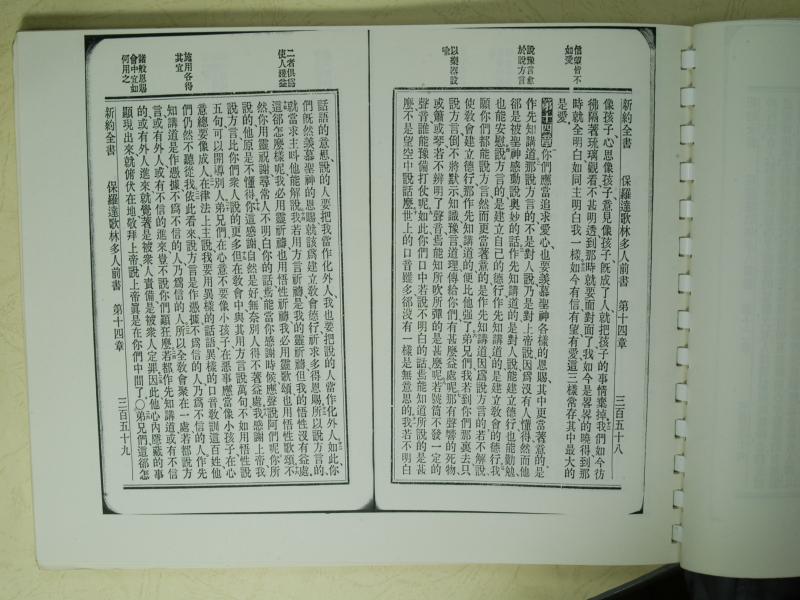 新約全書　保羅達歌林多人前書　第十四章　三百五十八
像孩子、心思像孩子、意見像孩子、既成了人、就把孩子的事情棄掉、我們如今彷
彿隔着琉璃觀看、不甚明透、到那時就要面對面了、我如今是畧畧的曉得、到那
時就全明白、如同主明白我一樣、如今有信、有望、有愛、這三樣常存、其中最大的
是愛、
第十四章你們應當追求愛心、也要羨慕聖神各樣的恩賜、其中更當著意的是
作先知講道、那說方言的、不是對人說、乃是對上帝說、因爲沒有人懂得、然而他
卻是被聖神感動說奧妙的話、作先知講道的、是對人說、能建立德行、也能勸勉、
也能安慰、說方言的、是建立自己的德行、作先知講道的、是建立敎會的德行、我
願你們都能說方言、然而更當著意的是作先知講道、因爲說方言的若不解說、
使敎會建立德行、那作先知講道的便比他強了、弟兄們、我若到你們那裏去、只
說方言、倒不將默示知識豫言道理傳給你們、有甚麼益處呢、那有聲響的死物、
或簫或琴、若不辨明了聲音、焉能知所吹所彈的是甚麼呢、若號筒不發一定的
聲音、誰能豫備打仗呢、如此你們口中若說不明白的話、焉能知道所說的是甚
麼、不是望空中說話麼、世上的口音雖多、卻沒有一樣是無意思的、我若不明白
信望皆不
如愛
說豫言愈
於說方言
以樂器設
喻
話語的意思、說的人要把我當作化外人、我也要把說的人當作化外人、如此你
們既然羨慕聖神的恩賜、就該爲建立敎會德行、祈求多得恩賜、所以說方言的、
就當求主呌他能解說、我若用方言祈禱、是我的靈祈禱、但我的悟性沒有益處、
這卻怎麼樣呢、我必用靈祈禱、也用悟性祈禱、我必用靈歌頌、也用悟性歌頌、不
然、你用靈祝謝、尋常人不明白你的話、焉能當你感謝時候、應聲說阿們呢、你所
說的他原是不懂得、你這感謝自然是好、無奈別人得不著益處、我感謝上帝、我
說方言比你們衆人說的更多、但在敎會中、與其用方言說萬句、不如用悟性說
五句、可以開導別人、弟兄們、在心意不要像小孩子、在惡事應當像小孩子、在心
意總要像成人、在律法上主說、我要用異樣的話語、異樣的口音、敎訓這百姓、他
們仍然不聽從我、依此看來、說方言、是作憑據、不爲信的人、乃爲不信的人、作先
知講道、是作憑據、不爲不信的人、乃爲信的人、所以全敎會聚在一處、若都說方
言、或有外人、或有不信的人進來、豈不說你們顚狂麼、若都作先知講道、或有不信
的、或有外人進來、就覺著是被衆人責備、是被衆人定罪、因此他心內隱藏的事
顯現出來、就俯伏在地、敬拜上帝、說上帝眞是在你們中間了、〇弟兄們、這卻怎
新約全書　保羅達歌林多人前書　第十四章　三百五十九
二者俱爲
使人獲益
施用各得
其宜
諸般恩賜
會中宜如
何用之